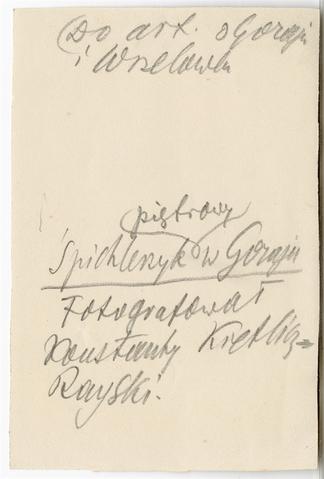 Do art. o Goraju
i Wrzelowcu
piętrowy
Śpichlerzyk w Goraju
Fotografował
Konstanty Kietlicz-
Rayski.